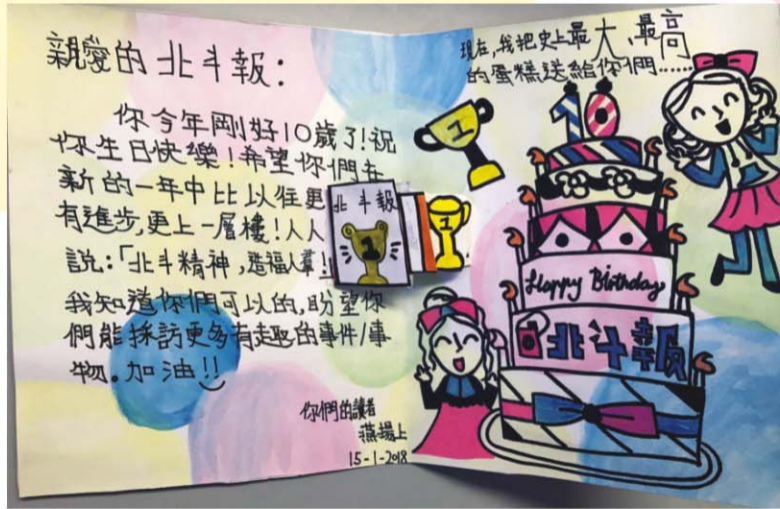 親愛的北斗報：
你今年剛好10歲了！祝
你生日快樂！希望你們在
新的一年中比以往更
有進步，更上一層樓！人人
說：「北斗精神，造福人羣！
我知道你們可以的，盼望你
們能採訪更多有趣的事件/事
物。加油!!
你們的讀者
燕揚上
15-1-2018
北斗報
1
1
1
現在，我把史上最大、最高
的蛋糕送給你們……
10
Happy Birthday
北斗報